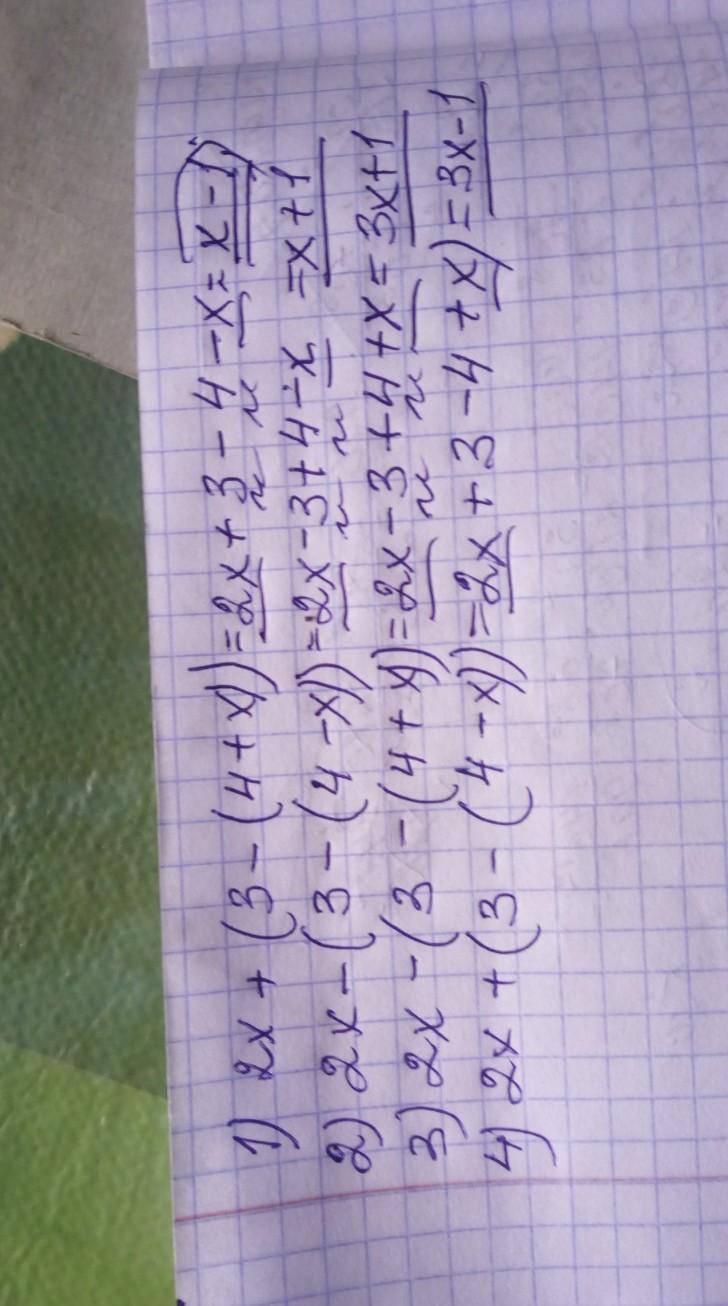 1) 2x + (3 - (4 + x)) = 2x + 3 - 4 - x = x - 1
2) 2x - (3 - (4 - x)) = 2x - 3 + 4 - x = x + 1
3) 2x - (3 - (4 + x)) = 2x - 3 + 4 + x = 3x + 1
4) 2x + (3 - (4 - x)) = 2x + 3 - 4 + x) = 3x - 1